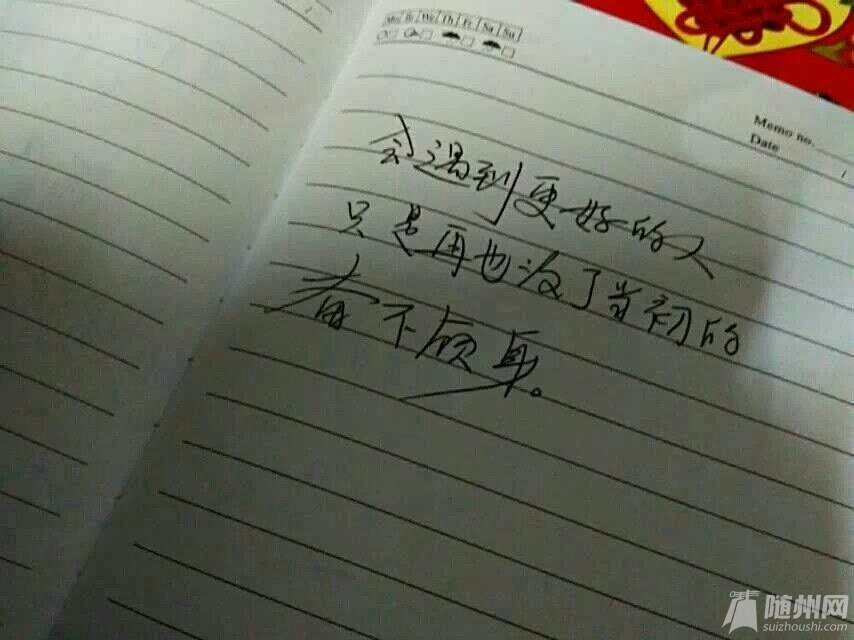 Mo Tu We Th Fr Sa Su
Memo no.
Date
会遇到更好的人
只是再也没了当初的
奋不顾身。
随州网
suizhoushi.com